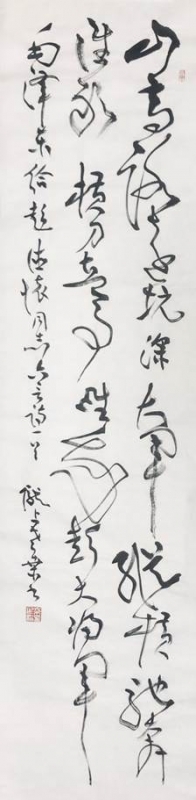 山高路远坑深大军纵横驰奔
谁敢横刀立马唯我彭大将军
毛泽东给彭德怀同志六言诗一首 陇上